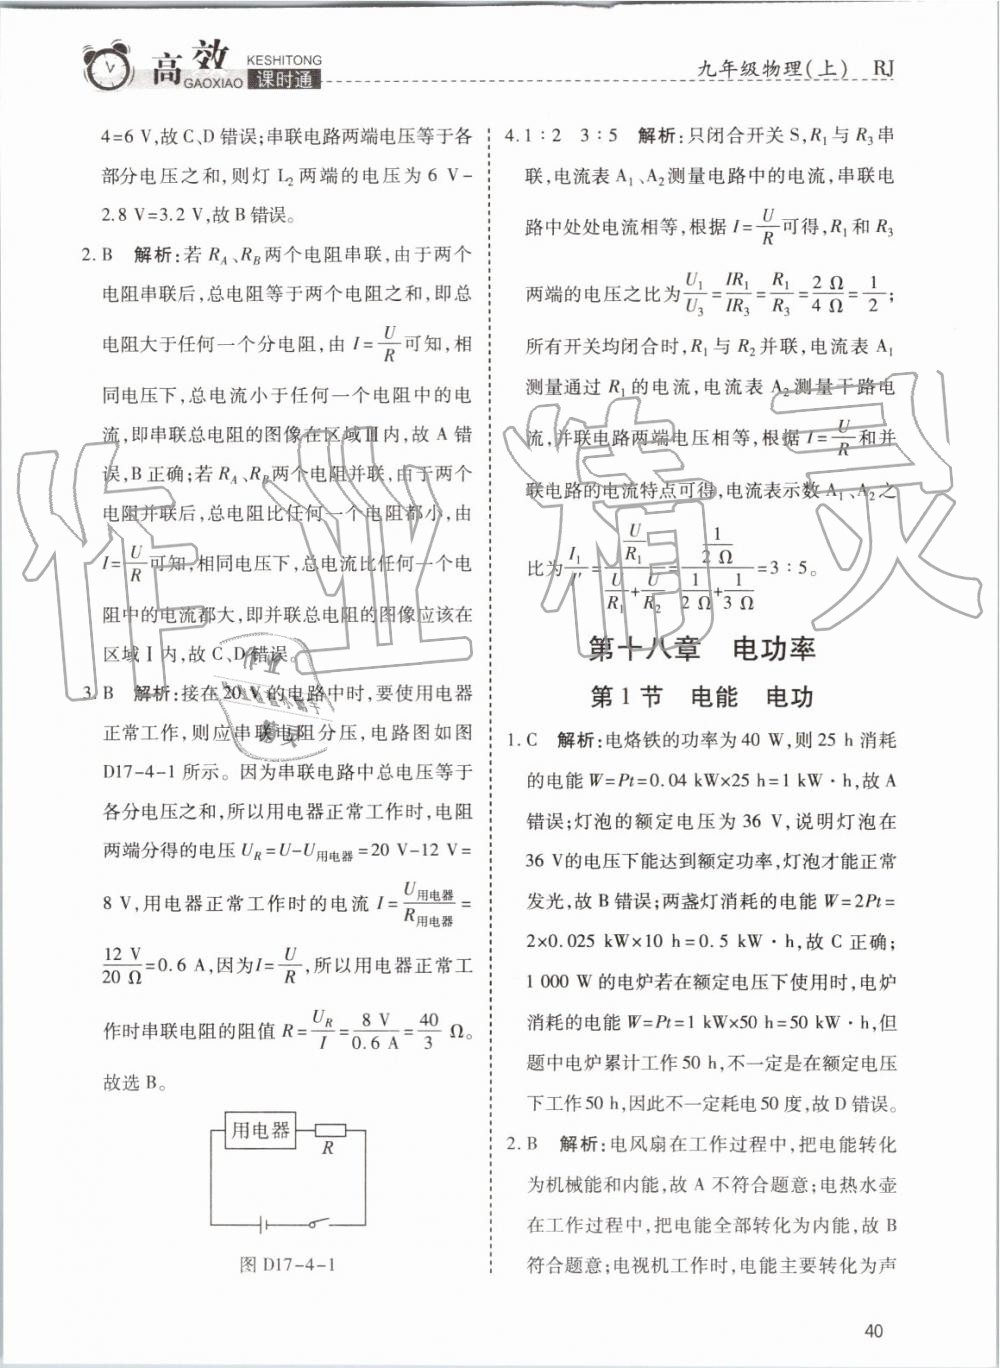 高效
GAOXIAO
KESHITONG
课时通
九年级物理(上) RJ
4=6 V,故C、D错误;串联电路两端电压等于各
部分电压之和,则灯 L₂ 两端的电压为 6 V-
2.8 V=3.2 V,故B错误。
2. B 解析:若 R_A、R_B两个电阻串联,由于两个
电阻串联后,总电阻等于两个电阻之和,即总
电阻大于任何一个分电阻,由 I=U/R可知,相
同电压下,总电流小于任何一个电阻中的电
流,即串联总电阻的图像在区域Ⅲ内,故A错
误,B正确;若 R_A、R_B两个电阻并联,由于两个
电阻并联后,总电阻比任何一个电阻都小,由
I=U/R可知,相同电压下,总电流比任何一个电
阻中的电流都大,即并联总电阻的图像应该在
区域Ⅰ内,故C、D错误。
3. B 解析:接在20 V的电路中时,要使用电器
正常工作,则应串联电阻分压,电路图如图
D17-4-1所示。因为串联电路中总电压等于
各分电压之和,所以用电器正常工作时,电阻
两端分得的电压 U_R=U-U用电器=20 V-12 V=
8 V,用电器正常工作时的电流 I=U用电器/R用电器=
12 V/20 Ω=0.6 A,因为I=U/R,所以用电器正常工
作时串联电阻的阻值 R=U_R/I=8 V/0.6 A=40/3 Ω。
故选B。
用电器
R
图 D17-4-1
4. 1∶2 3∶5 解析:只闭合开关S,R₁与R₃串
联,电流表A₁、A₂测量电路中的电流,串联电
路中处处电流相等,根据 I=U/R可得,R₁和R₃
两端的电压之比为U₁/U₃=IR₁/IR₃=R₁/R₃=2 Ω/4 Ω=1/2;
所有开关均闭合时,R₁与R₂并联,电流表A₁
测量通过R₁的电流,电流表A₂测量干路电
流,并联电路两端电压相等,根据 I=U/R和并
联电路的电流特点可得,电流表示数A₁、A₂之
比为I₁/I′=(U/R₁)/(U/R₁+U/R₂)=(1/2 Ω)/(1/2 Ω+1/3 Ω)=3∶5。
第十八章 电功率
第1节 电能 电功
1. C 解析:电烙铁的功率为40 W,则25 h消耗
的电能 W=Pt=0.04 kW×25 h=1 kW·h,故A
错误;灯泡的额定电压为36 V,说明灯泡在
36 V的电压下能达到额定功率,灯泡才能正常
发光,故B错误;两盏灯消耗的电能 W=2Pt=
2×0.025 kW×10 h=0.5 kW·h,故C正确;
1 000 W的电炉若在额定电压下使用时,电炉
消耗的电能 W=Pt=1 kW×50 h=50 kW·h,但
题中电炉累计工作50 h,不一定是在额定电压
下工作50 h,因此不一定耗电50度,故D错误。
2. B 解析:电风扇在工作过程中,把电能转化
为机械能和内能,故A不符合题意;电热水壶
在工作过程中,把电能全部转化为内能,故B
符合题意;电视机工作时,电能主要转化为声
40
作业精灵